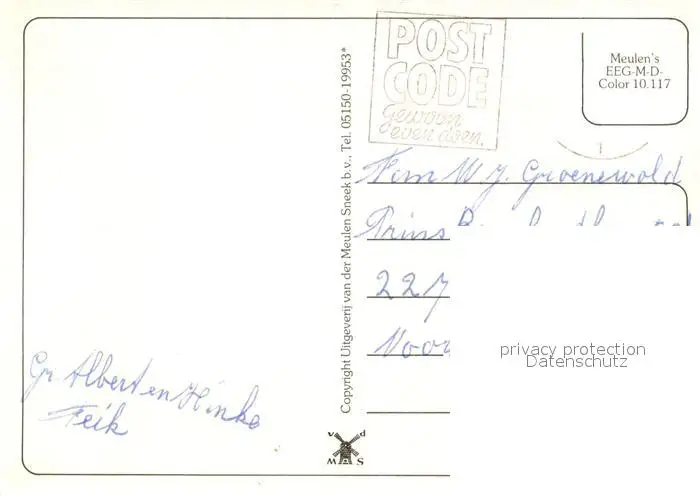 POST
CODE
gewoon
even doen.
Meulen's
EEG-M-D-
Color 10.117
Copyright Uitgeverij van der Meulen Sneek b.v., Tel. 05150-19953*
Fam W.J. Groenewold
Prins
227
Voor
privacy protection
Datenschutz
Gr Albert en Hinke
Feik
v d
M S